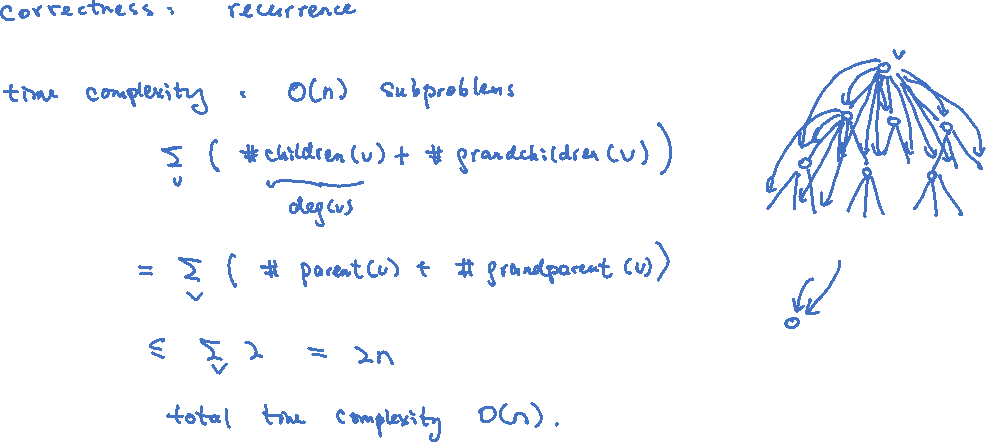 correctness : recurrence
time complexity : O(n) subproblems
v
∑ ( #children(v) + # grandchildren(v) )
v
deg(v)
= ∑ ( # parent(v) + # grandparent (v) )
v
≤ ∑ 2 = 2n
v
total time complexity O(n).